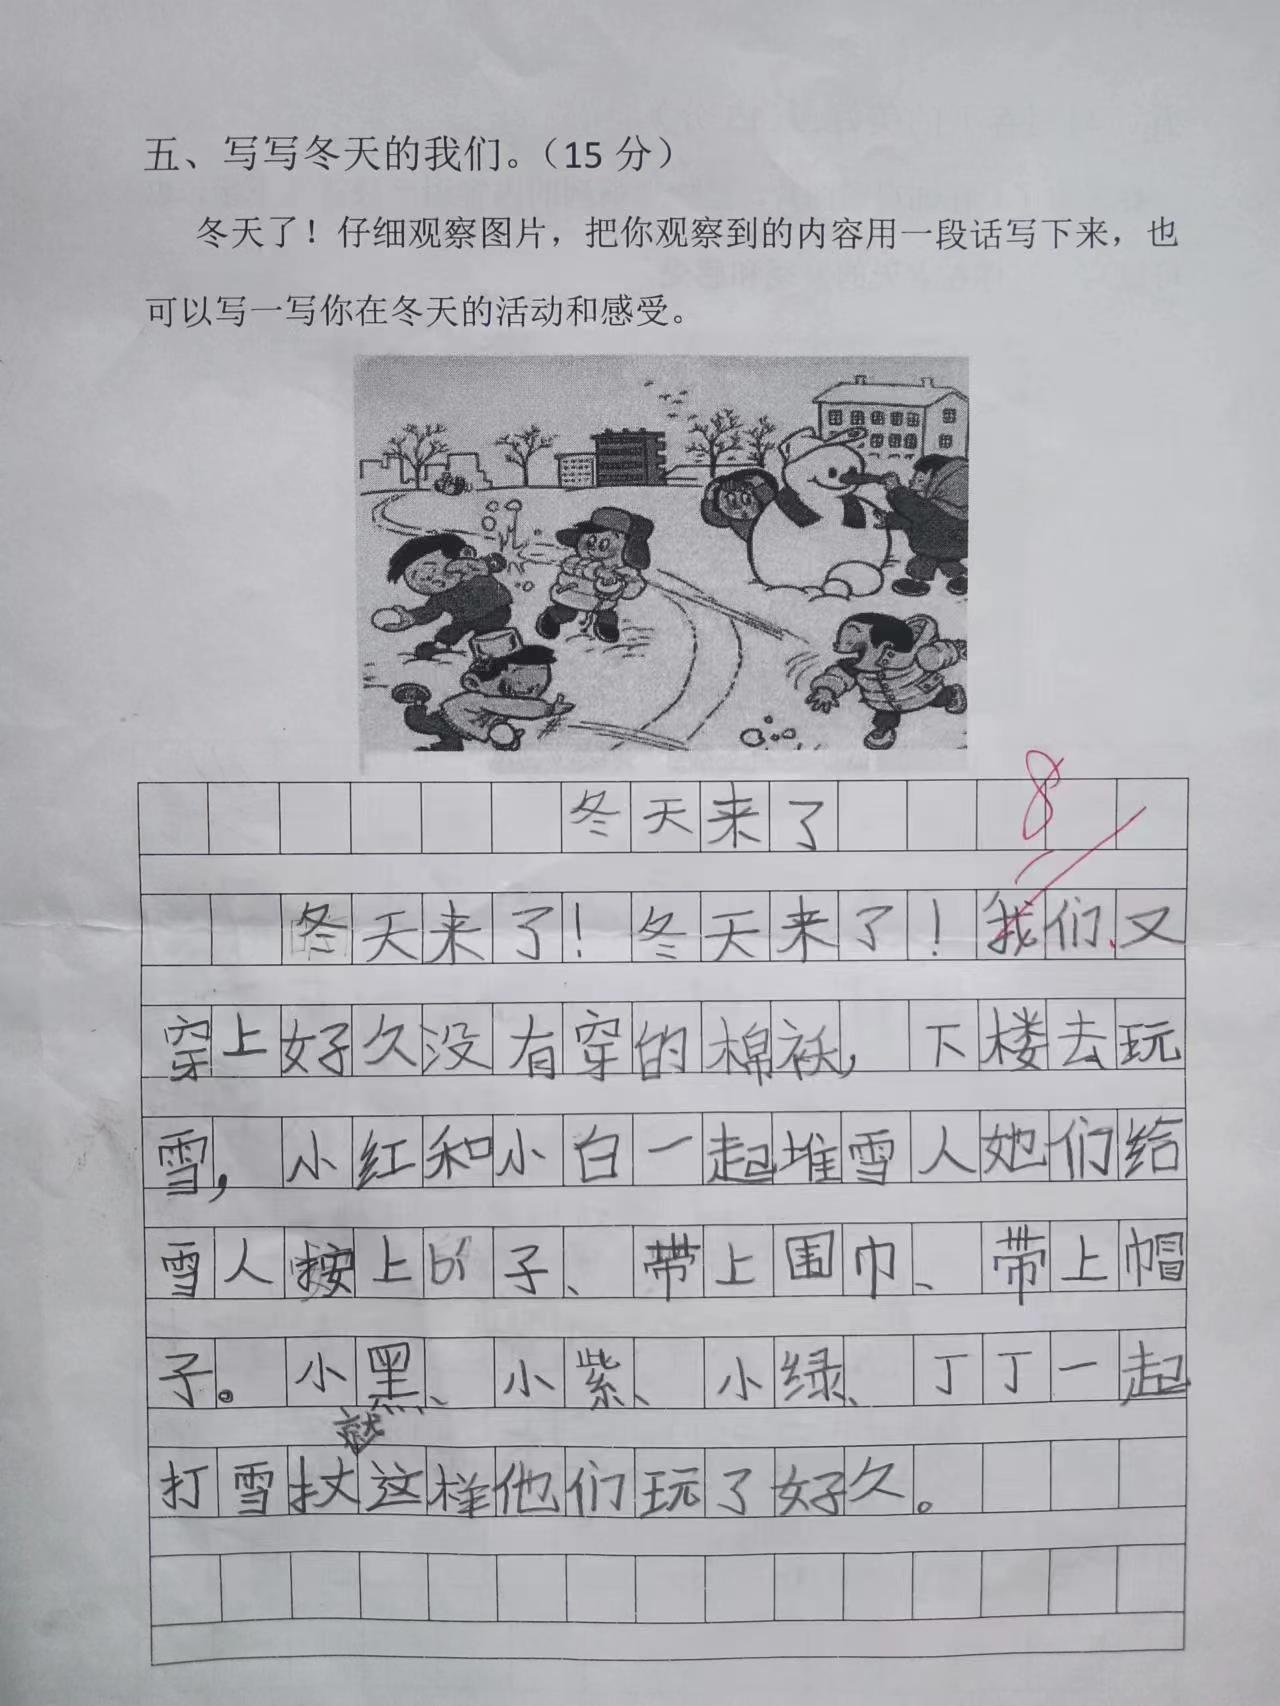 五、写写冬天的我们。（15 分）
冬天了！仔细观察图片，把你观察到的内容用一段话写下来，也
可以写一写你在冬天的活动和感受。
8
冬天来了
冬天来了！冬天来了！我们又
穿上好久没有穿的棉袄，下楼去玩
雪，小红和小白一起堆雪人她们给
雪人按上子、带上围巾、带上帽
子。小黑、小紫、小绿、丁丁一起
就
打雪扙这样他们玩了好久。